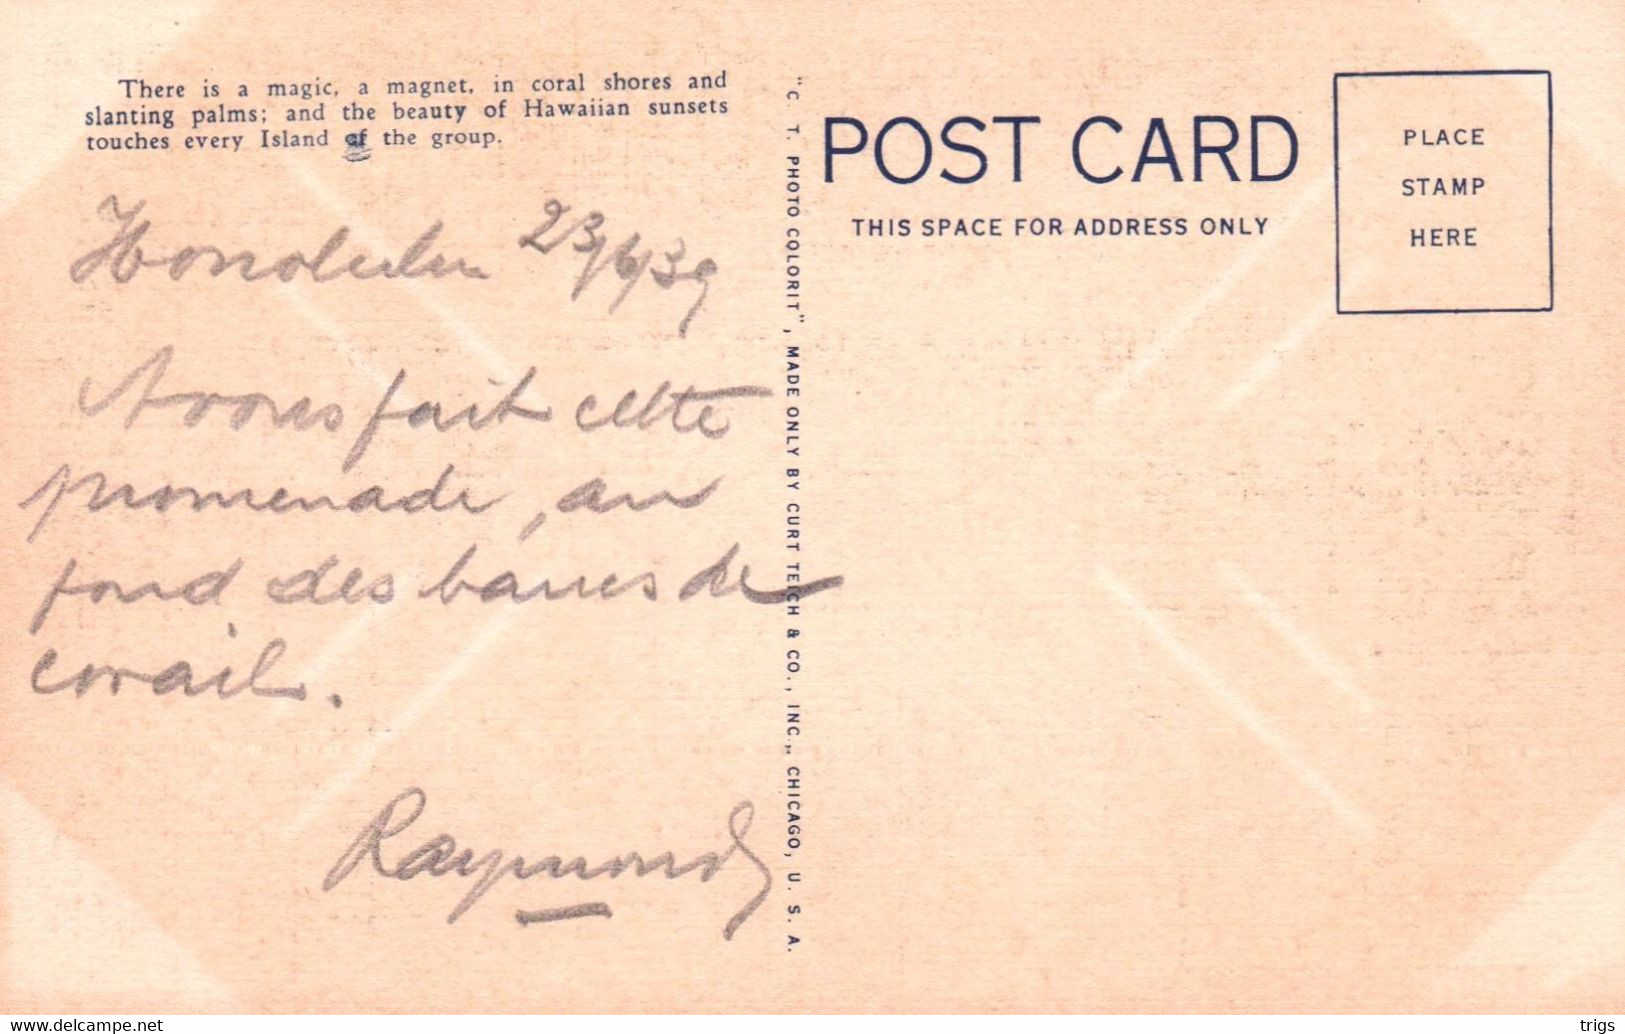 There is a magic, a magnet, in coral shores and
slanting palms; and the beauty of Hawaiian sunsets
touches every Island of the group.
Honolulu 23/6/39
Avons fait cette
promenade, au
fond des bancs de
corail.
Raymond
"C. T. PHOTO COLORIT", MADE ONLY BY CURT TEICH & CO., INC., CHICAGO, U. S. A.
POST CARD
THIS SPACE FOR ADDRESS ONLY
PLACE
STAMP
HERE
www.delcampe.net
trigs